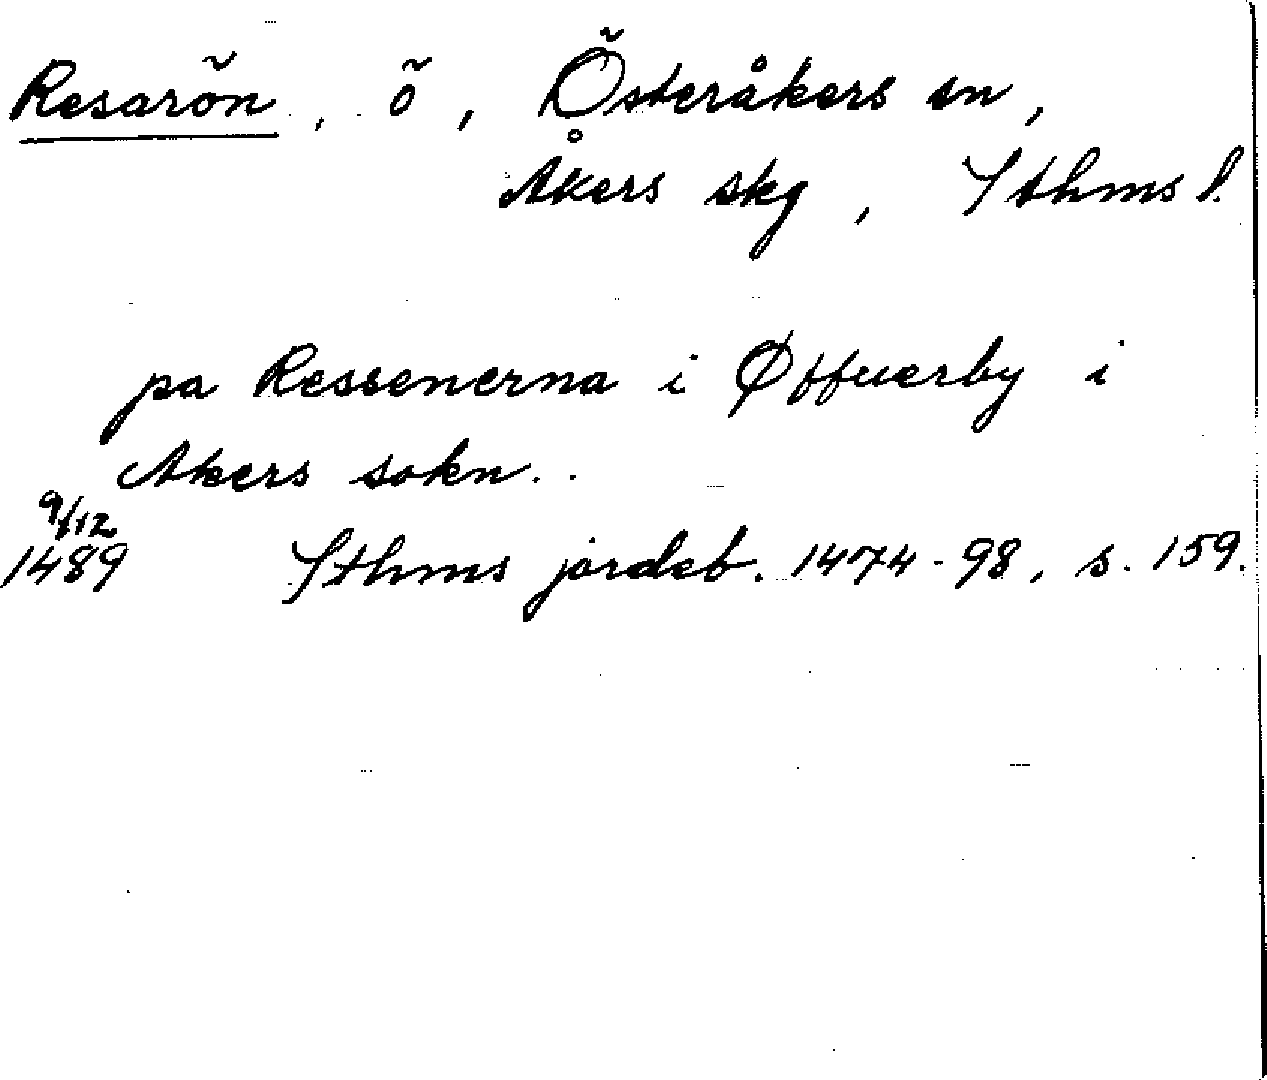 Resarön, ö, Österåkers sn,
Åkers skg, Sthms l.
pa Ressenerna i Øffuerby i
Akers sokn..
9/12
1489 Sthms jordeb. 1474-98, s. 159.